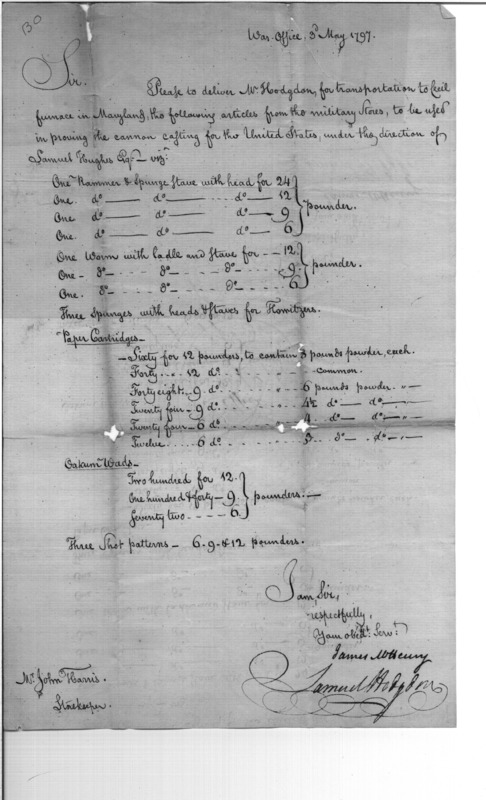 130
War Office, 3d May 1797.
Sir.
Please to deliver Mr Hodgdon, for transportation to Cecil
furnace in Maryland, the following articles from the military Stores, to be used
in proving the cannon casting for the United States, under the direction of
Samuel Hughes Esqr. vizt.
One Rammer & Spunge Stave with head for 24
One do do do 12
One do do do 9
One do do do 6
pounder.
One Worm with Ladle and Stave for 12.
One do do do 9.
One. do do do 6
pounder.
Three Spunges with heads & Staves for Howitzers.
Paper Cartridges
Sixty for 12 pounders, to contain 8 pounds powder, each.
Forty 12 do. " common.
Forty eight 9 do. 6 pounds powder. "
Twenty four 9 do. 4½ do do "
Twenty four 6 do. 4 do do "
Twelve 6 do. 3 do do "
Oakum Wads
Two hundred for 12.
One hundred & forty 9
Seventy two 6
pounders.
Three Shot patterns 6. 9. & 12 pounders.
I am, Sir,
respectfully,
Your obedt. Servt.
James McHenry
Samuel Hodgdon
Mr. John Harris.
Storekeeper.